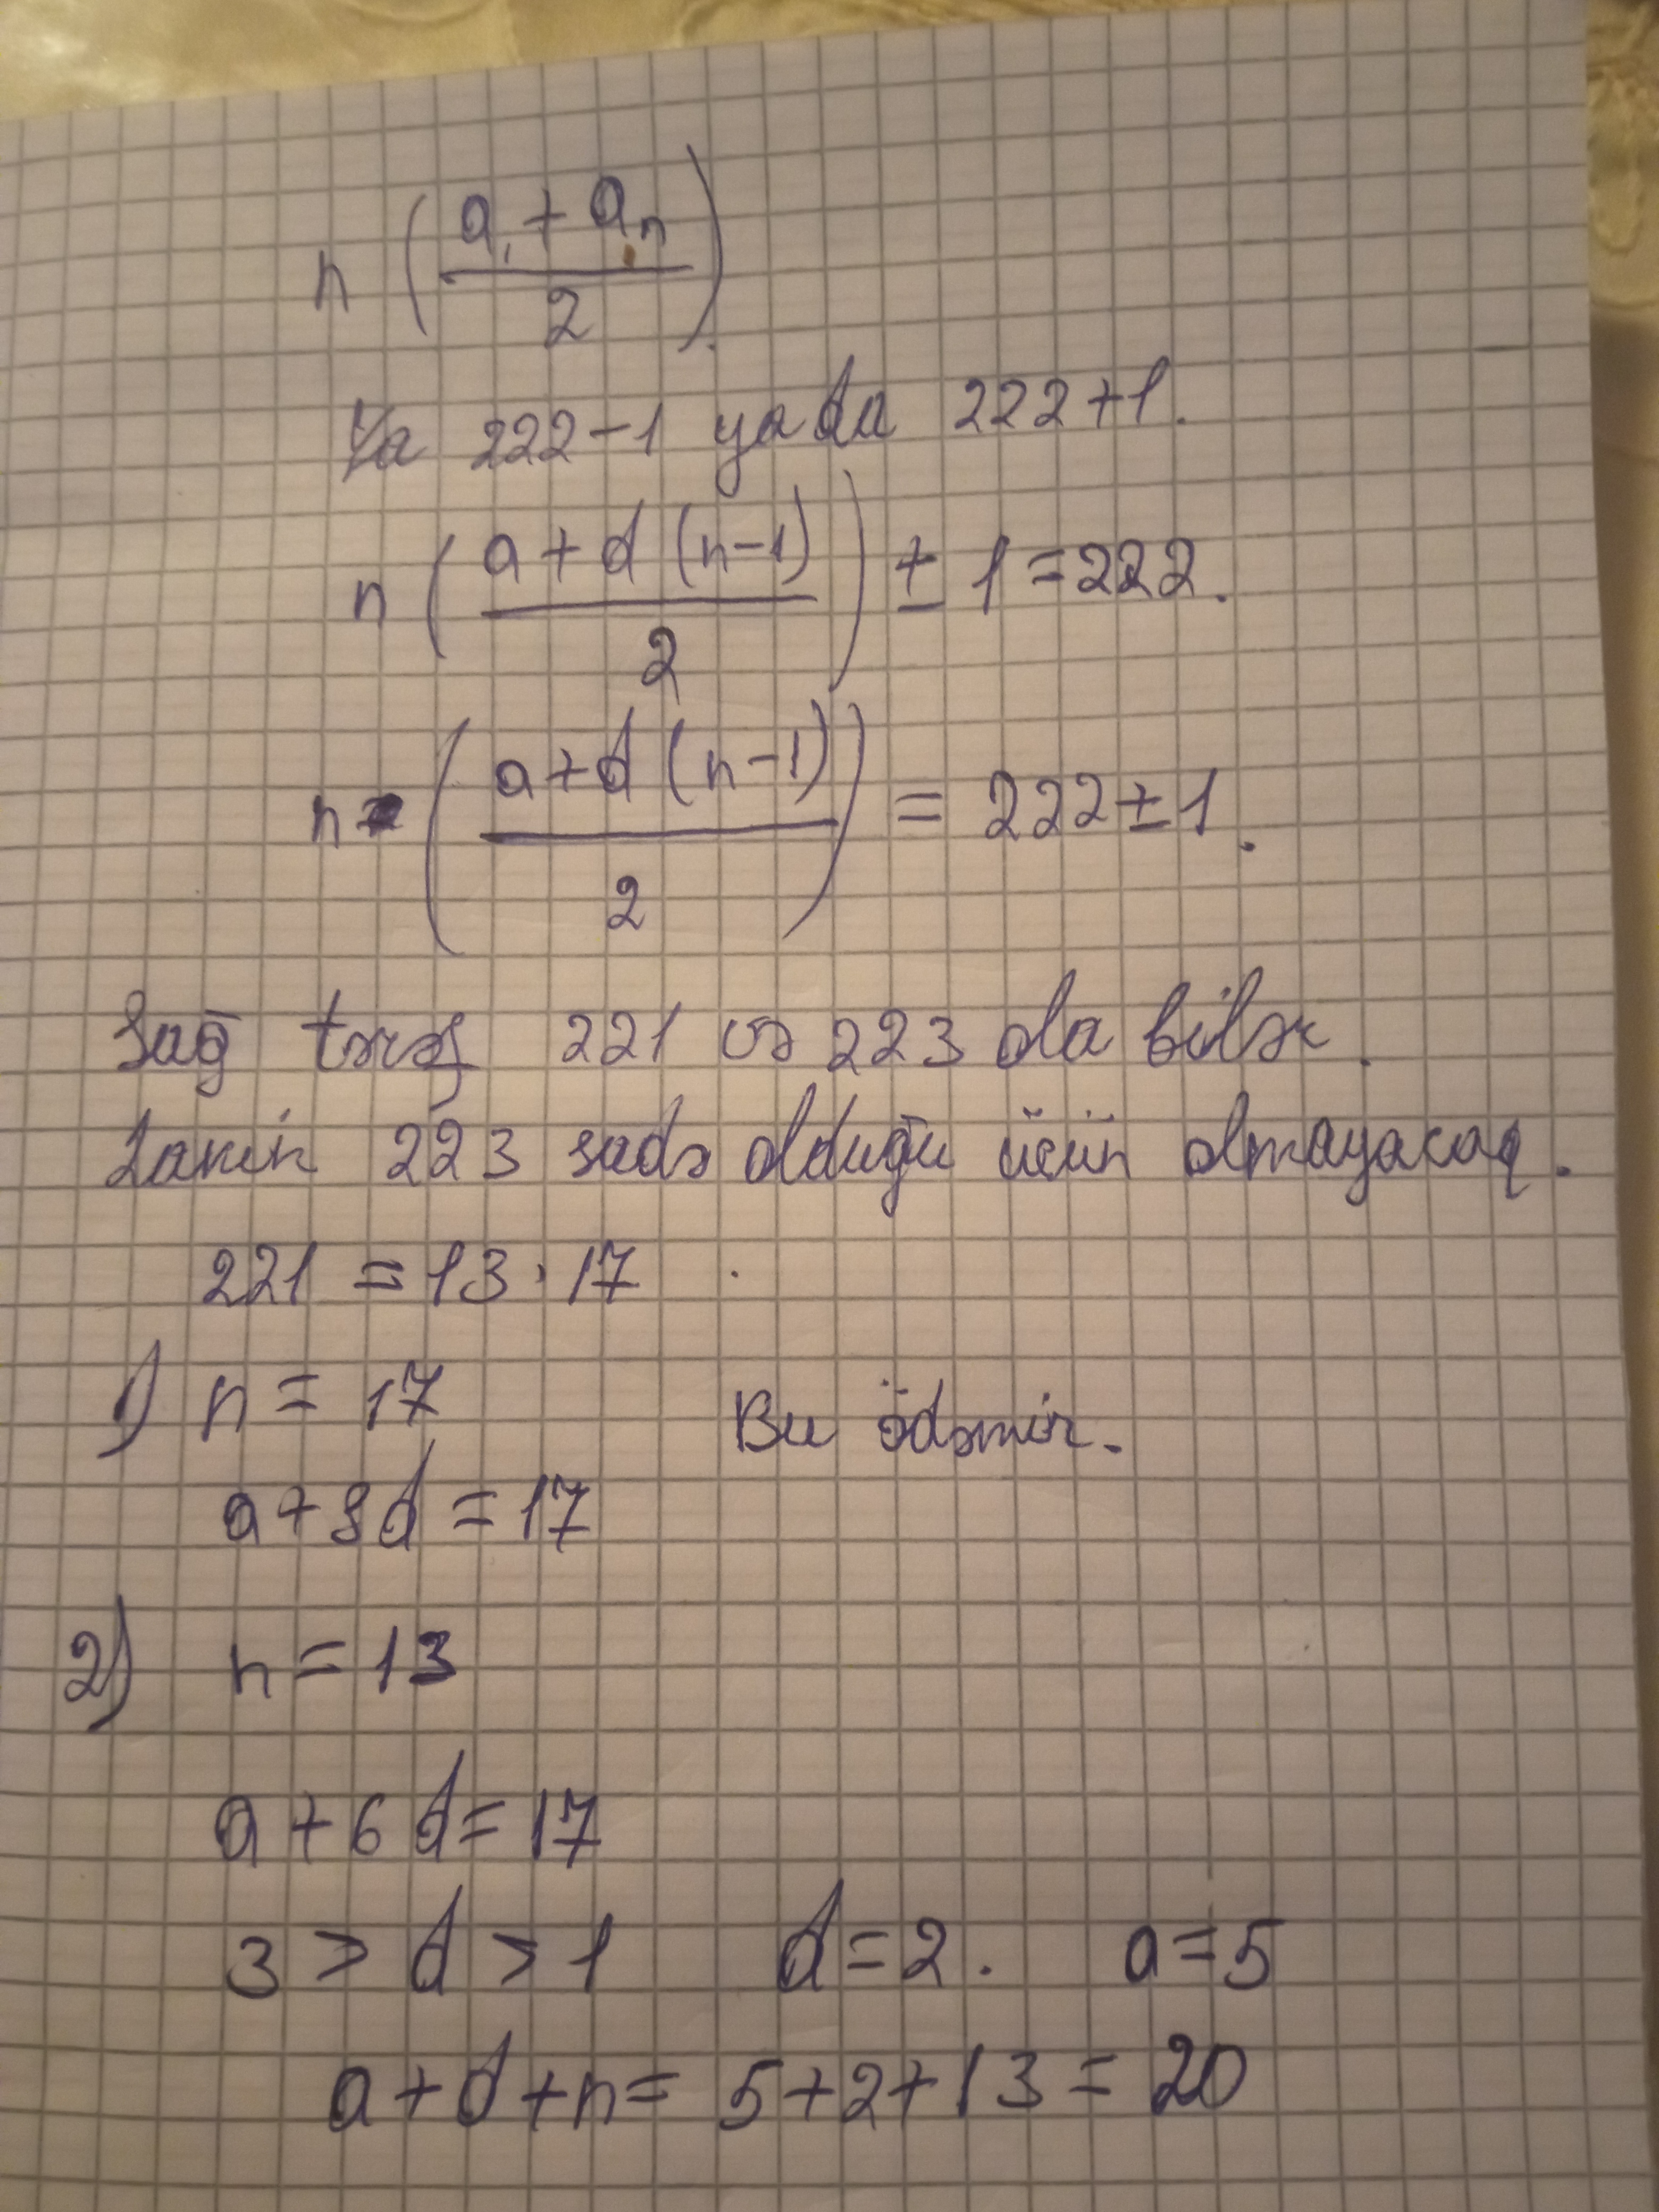 n (a₁ + aₙ / 2)
Ya 222-1 ya da 222+1.
n (a+d(n-1) / 2) ± 1 = 222.
n (a+d(n-1) / 2) = 222 ± 1.
Sağ tərəf 221 və 223 ola bilər.
Lakin 223 sadə olduğu üçün olmayacaq.
221 = 13 · 17
1) n = 17 Bu ödəmir.
a + 8d = 17
2) n = 13
a + 6d = 17
3 > d > 1 d = 2. a = 5
a + d + n = 5 + 2 + 13 = 20